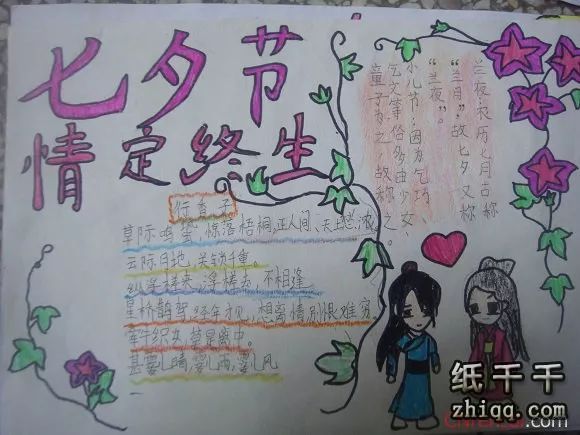 七夕节
情定终生
兰夜：农历七月古称
“兰月”，故七夕又称
“兰夜”。
小儿节：因为乞巧、
乞文等俗多由少女、
童子为之，故称之。
行香子
草际鸣蛩，惊落梧桐，正人间、天上愁浓。
云阶月地，关锁千重。
纵浮槎来，浮槎去，不相逢
星桥鹊驾，经年才见，想离情别恨难穷
牵牛织女，莫是离中。
甚霎儿晴，霎儿雨，霎儿风
纸千千
zhiqq.com